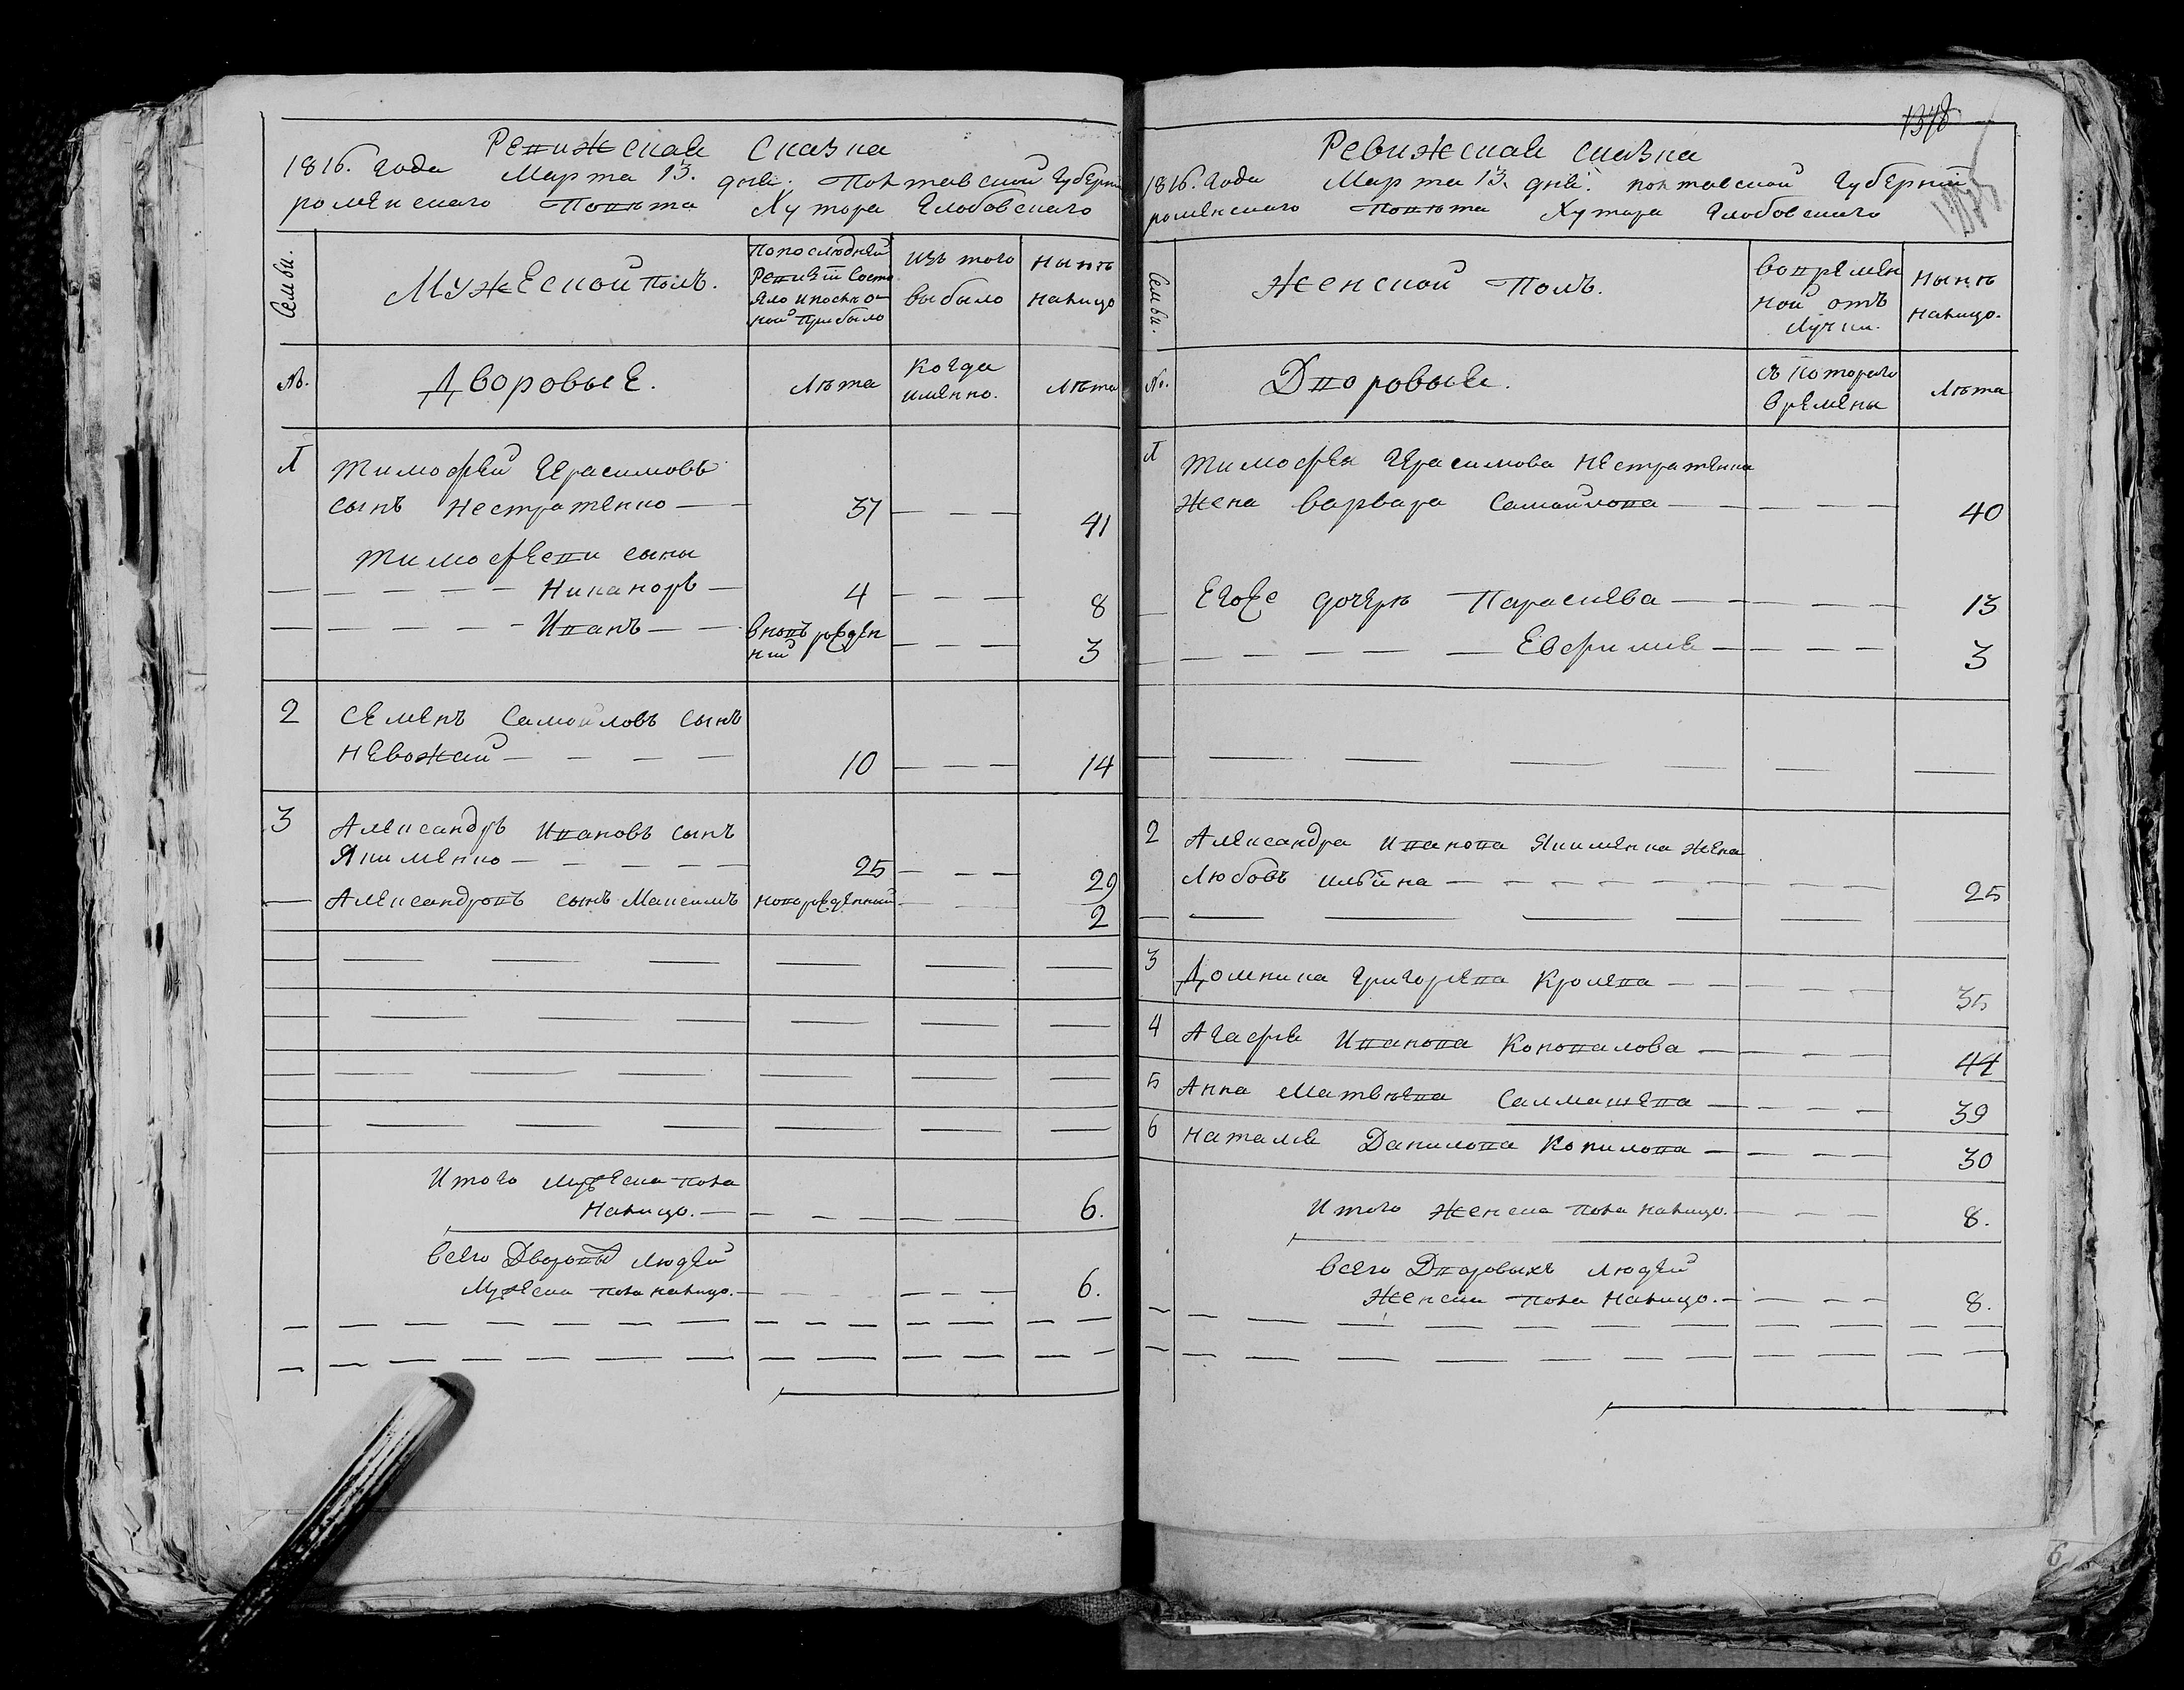 Ревижская Сказка
1816. года Марта 13. дня. Полтавской Губерни
роменского Повѣта Хутора Глобовского
Семьи.
Мужеской полъ.
По последней
Ревизіи Состо
яло и после о
ной прибыло
Изъ того
выбыло
Нынѣ
налицо
№.
Дворовые.
Лѣта
Когда
именно.
Лѣта
1 Тимофей Герасимовъ
сынъ Нестратенко 37 41
Тимофееви сыны
Никаноръ 4 8
Иванъ вновь рожден
ній 3
2 Семенъ Самойловъ сынъ
Невожай 10 14
3 Александръ Ивановъ сынъ
Якименко 25 29
Александровъ сынъ Максимъ новорожденный 2
Итого мужеска пола
налицо. 6.
Всего Дворовы людей
Мужеска пола налицо. 6.
1378
Ревижская сказка
1816. года Марта 13. дня. полтавской Губерніи
роменского Повѣта Хутора Глобовского
Семьи.
Женской Полъ.
Во времен
ной отъ
лучки.
Нынѣ
налицо.
№.
Дворовыя.
съ которого
времены
Лѣта
1 Тимофея Герасимова Нестратенка
жена Варвара Самойлова 40
Егоже дочеры Параскева 13
Евфимия 3
2 Александра Иванова Якименка жена
Любовъ Ильина 25
3 Домника Григорева Кролева 35
4 Агафия Иванова Коновалова 44
5 Анна Матвѣева Салмашева 39
6 Наталия Данилова Копилова 30
Итого женска пола налицо. 8.
Всего Дворовыхъ людей
Женска пола налицо. 8.
6